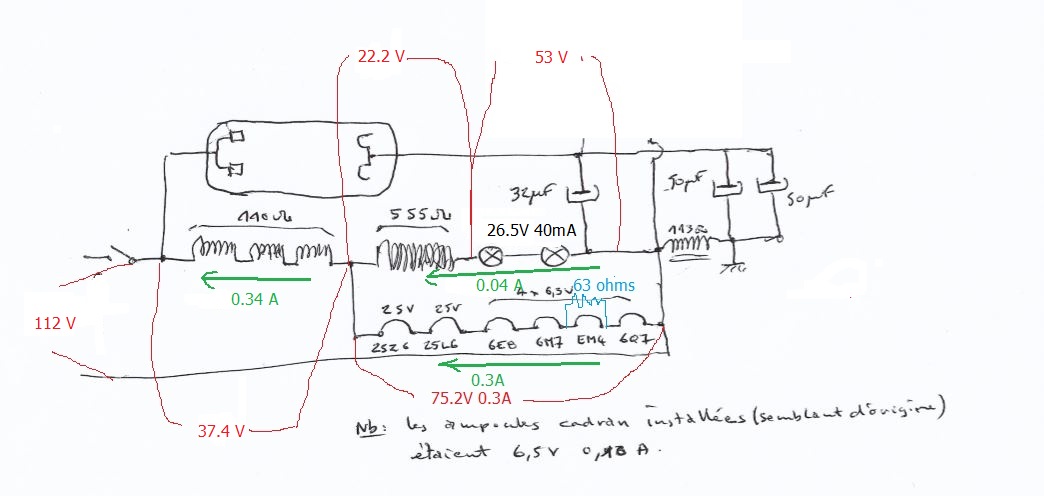 22.2 V
53 V
32µF
50µF
50µF
110Ω
555Ω
26.5V 40mA
113Ω
0.34 A
0.04 A
4 x 6,3V
63 ohms
25V
25V
112 V
25Z6
25L6
6E8
6M7
EM4
6Q7
0.3A
75.2V 0.3A
37.4 V
Nb: les ampoules cadran installées (semblant d'origine)
étaient 6,5V A.